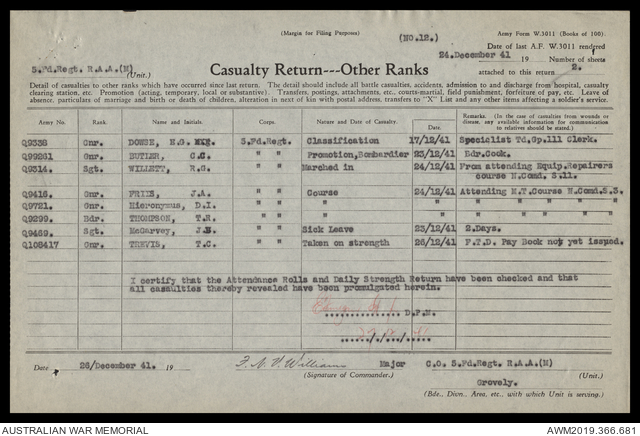 (Margin for Filing Purposes)
(NO.12.)
Army Form W.3011 (Books of 100).
Date of last A.F. W.3011 rendered
24.December 41 19
Number of sheets
attached to this return 2.
5.Fd.Regt. R.A.A.(M)
(Unit.)
Casualty Return---Other Ranks
Detail of casualties to other ranks which have occurred since last return. The detail should include all battle casualties, accidents, admission to and discharge from hospital, casualty
clearing station, etc. Promotion (acting, temporary, local or substantive). Transfers, postings, attachments, etc., courts-martial, field punishment, forfeiture of pay, etc. Leave of
absence, particulars of marriage and birth or death of children, alteration in next of kin with postal address, transfers to "X" List and any other items affecting a soldier's service.
Army No. Rank. Name and Initials. Corps. Nature and Date of Casualty. Date. Remarks. (In the case of casualties from wounds or disease, any available information for communication to relatives should be stated.)
Q9338 Gnr. DOWSE, H.G. 5.Fd.Regt. Classification 17/12/41 Specialist Td.Gp.111 Clerk.
Q99261 Gnr. BUTLER, C.C. " " Promotion,Bombardier 23/12/41 Bdr.Cook.
Q9314. Sgt. WILLETT, R.G. " " Marched in 24/12/41 From attending Equip.Repairers
course N.Comd. S.11.
Q9416. Gnr. FRIIS, J.A. " " Course 24/12/41 Attending M.T.Course N.Comd.S.S.
Q9721. Gnr. Hieronymus, D.I. " " " " " " " " "
Q9299. Bdr. THOMPSON, T.R. " " " " " " " " "
Q9469. Sgt. McGarvey, J.B. " " Sick Leave 23/12/41 2.Days.
Q108417 Gnr. TREVIS, T.C. " " Taken on strength 26/12/41 F.T.D. Pay Book not yet issued.
I certify that the Attendance Rolls and Daily Strength Return have been checked and that
all casualties thereby revealed have been promulgated herein.
.............. D.P.M.
...../.../....
Date 26/December 41. 19
F. N. V. Williams Major C.O. 5.Fd.Regt. R.A.A.(M)
(Signature of Commander.) (Unit.)
Grovely.
(Bde., Divn., Area, etc., with which Unit is serving.)
AUSTRALIAN WAR MEMORIAL
AWM2019.366.681